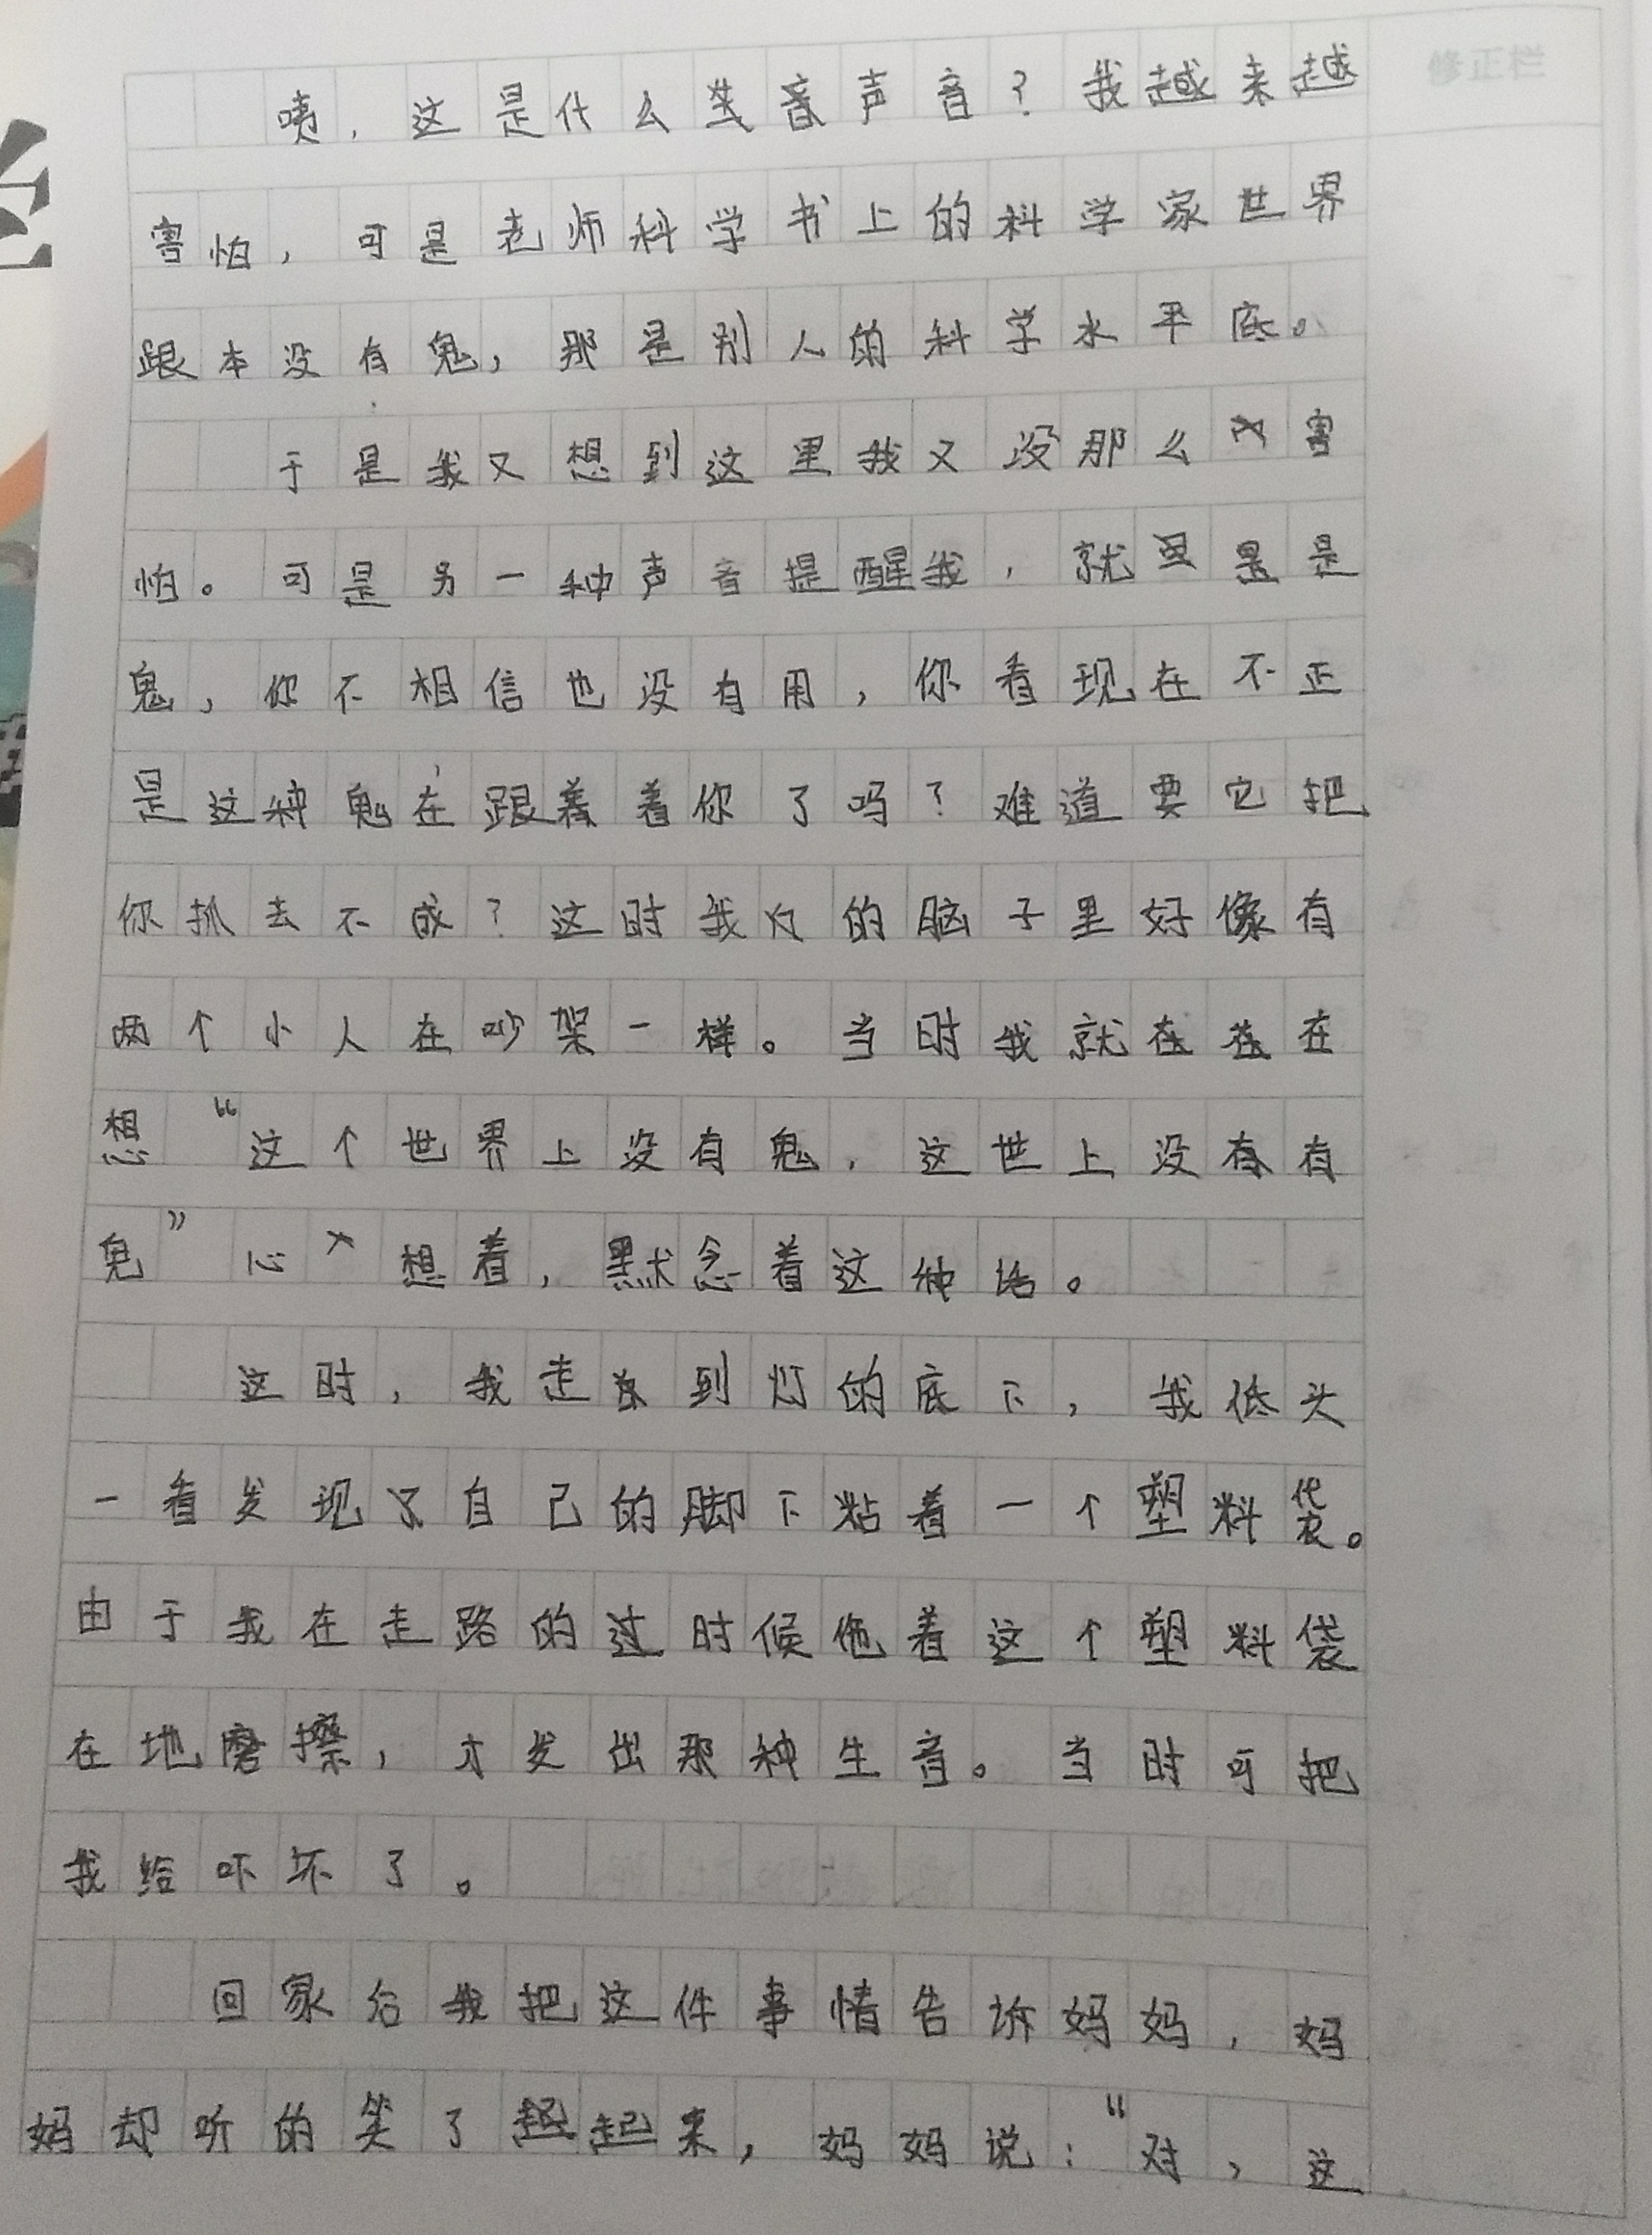 修正栏
咦，这是什么声音？我越来越
害怕，可是老师科学书上的科学家世界
跟本没有鬼，那是别人的科学水平底。
于是我又想到这里我又没那么害
怕。可是另一种声音提醒我，就是
鬼，你不相信也没有用，你看现在不正
是这种鬼在跟着你了吗？难道要它把
你抓去不成？这时我的脑子里好像有
两个小人在吵架一样。当时我就在
想“这个世界上没有鬼，这世上没有
鬼”心想着，默念着这种话。
这时，我走到灯的底下，我低头
一看发现了自己的脚下粘着一个塑料袋。
由于我在走路的时候他着这个塑料袋
在地磨擦，才发出那种生音。当时可把
我给吓坏了。
回家后我把这件事情告诉妈妈，妈
妈却听的笑了起来，妈妈说：“对，这